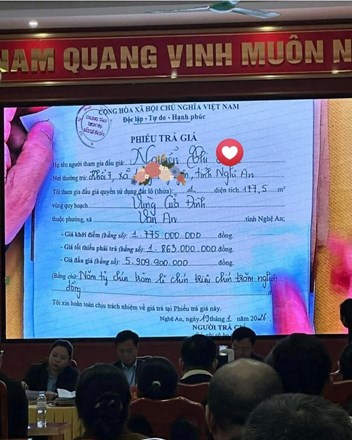 NAM QUANG VINH MUÔN N
CỘNG HÒA XÃ HỘI CHỦ NGHĨA VIỆT NAM
Độc lập - Tự do - Hạnh phúc
PHIẾU TRẢ GIÁ
Họ tên người tham gia đấu giá: Nguyễn Thị
Nơi thường trú: Khối 7, xã tỉnh Nghệ An
Tôi tham gia đấu giá quyền sử dụng đất lô (thửa): diện tích 177,5 m²
vùng quy hoạch Vùng Cửa Đình
thuộc phường, xã Vân An tỉnh Nghệ An;
- Giá khởi điểm (bằng số): 1.775.000.000 đồng.
- Giá tối thiểu phải trả (bằng số): 1.863.000.000 đồng.
- Giá đấu giá (bằng số): 5.909.900.000 đồng.
(Bằng chữ: Năm tỷ chín trăm lẻ chín triệu chín trăm nghìn
đồng
Tôi xin hoàn toàn chịu trách nhiệm về giá trả tại Phiếu trả giá này.
Nghệ An, ngày 19 tháng 1 năm 2026
NGƯỜI TRẢ GIÁ